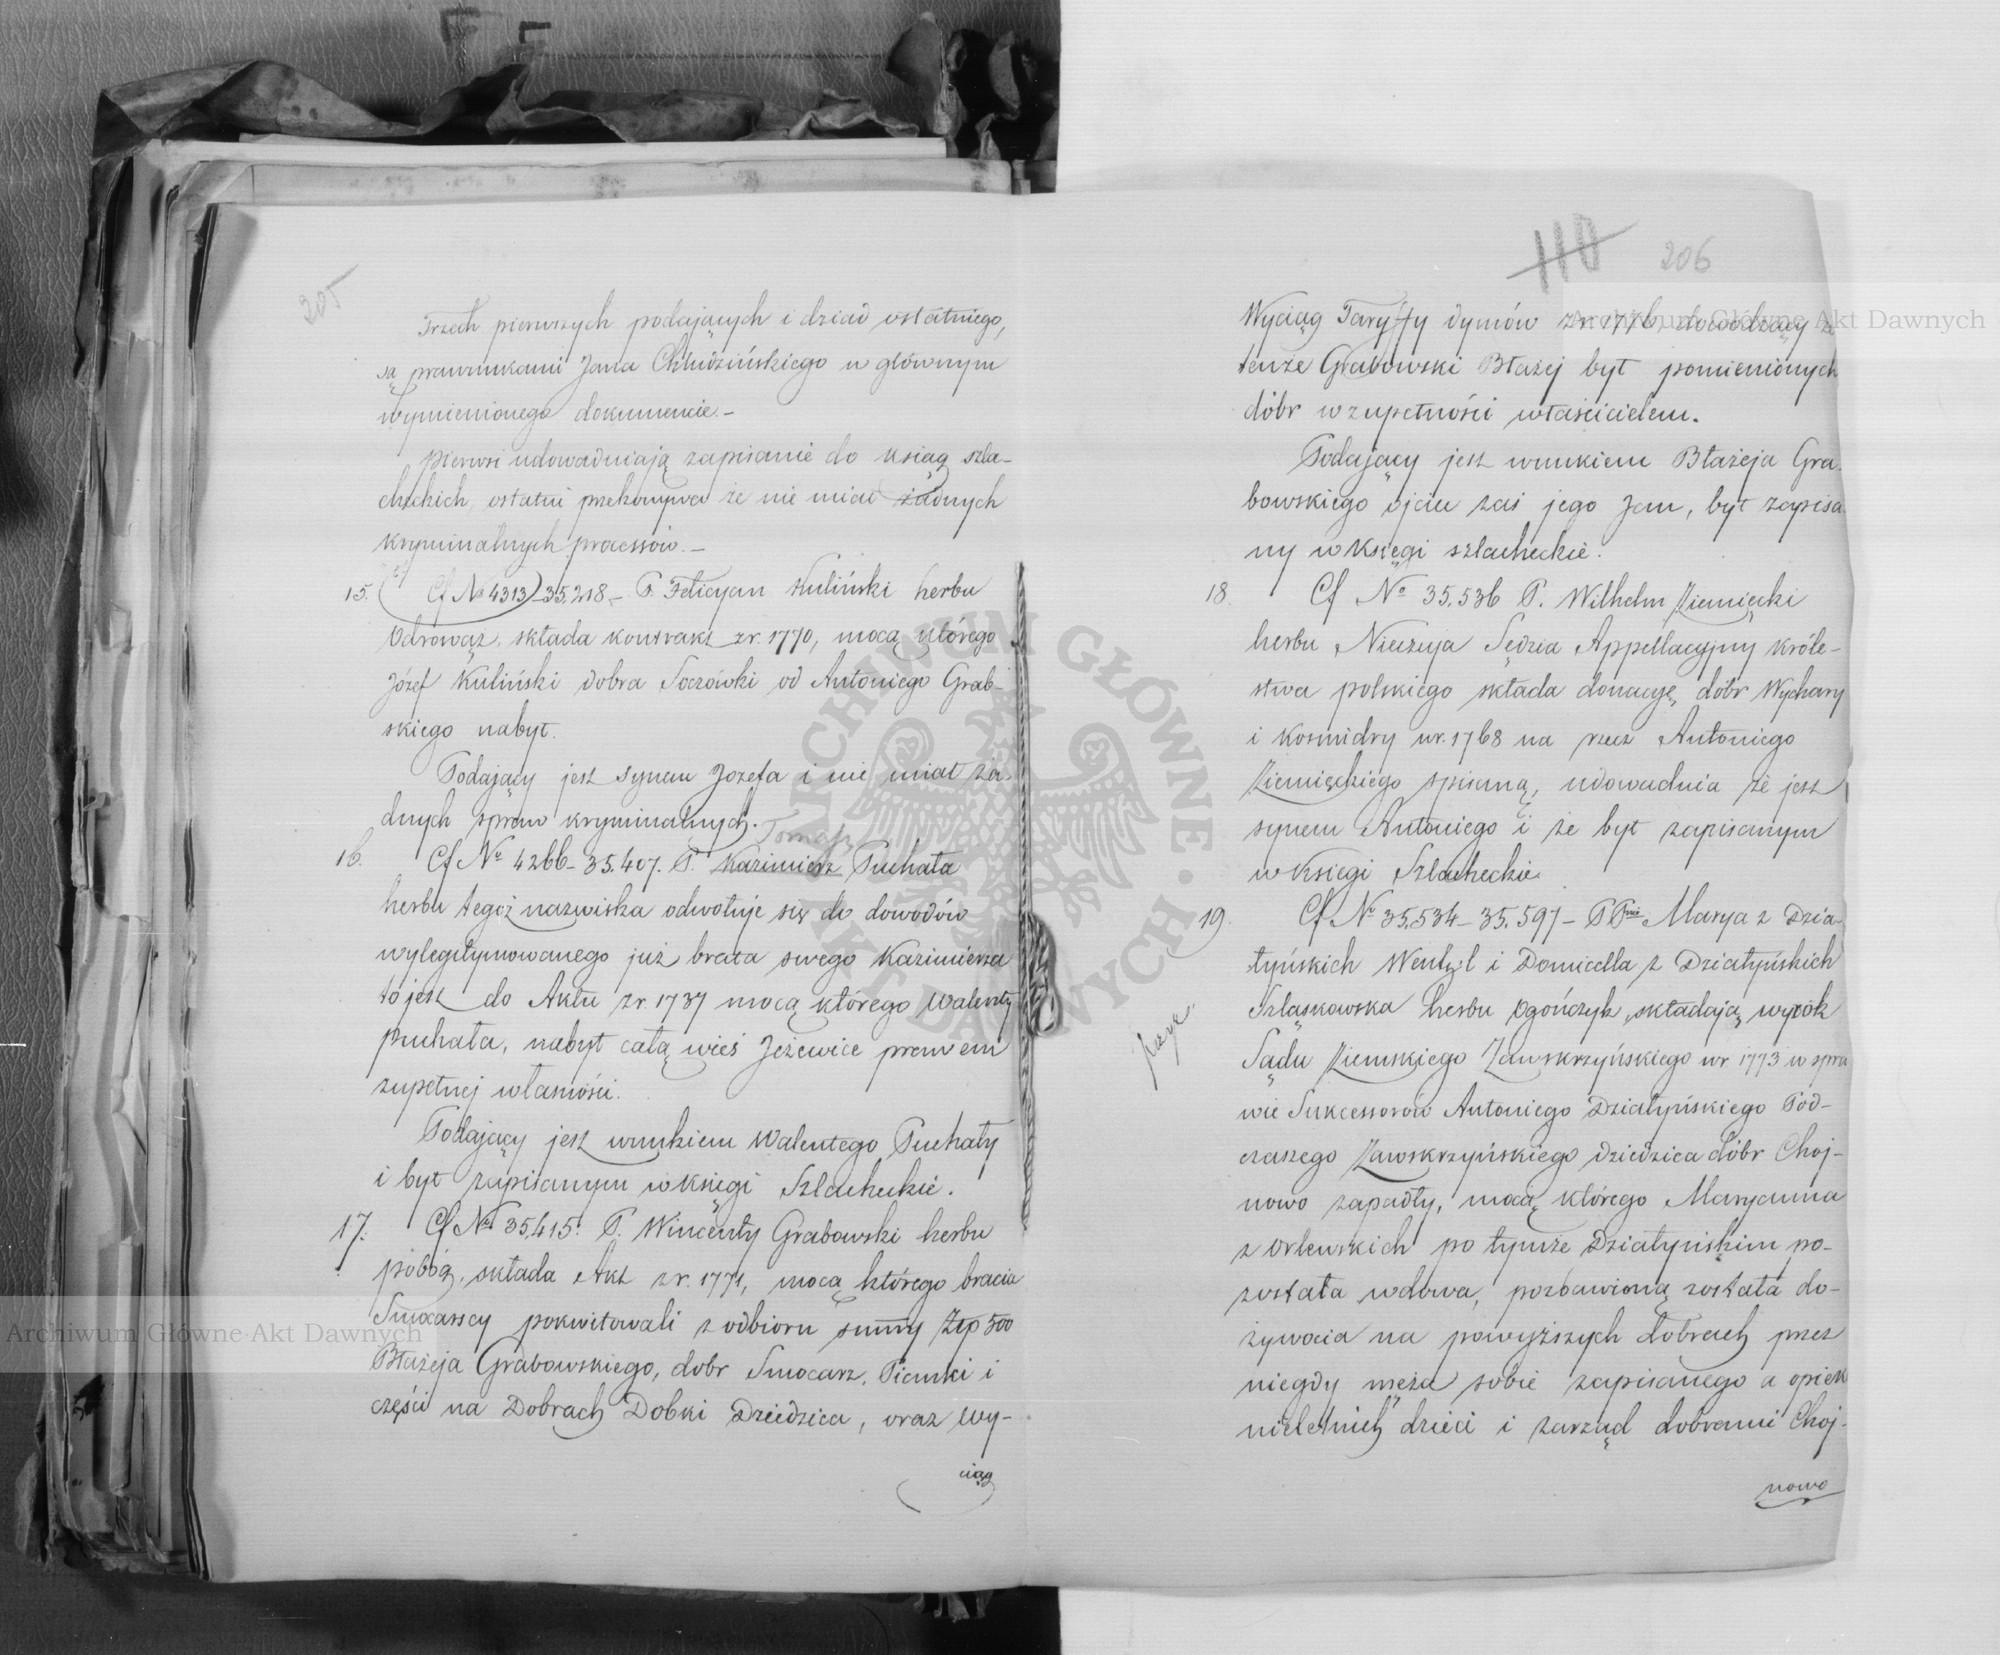 205
trzech pierwszych podających i dziad ostatniego,
są prawnukami Jana Chludzińskiego w głównym
wymienionego dokumencie.-
Pierwsi udowadniają zapisanie do ksiąg szla-
checkich, ostatni przekonywa że nie miał żadnych
kryminalnych processów.-
15. Cf No 4313-35.218.- P. Felicyan Kuliński herbu
Odrowąż, składa kontrakt z r. 1770, mocą którego
Józef Kuliński dobra Soczówki od Antoniego Grab-
skiego nabył.
Podający jest synem Jozefa i nie miał ża-
dnych spraw kryminalnych.
Tomasz
16. Cf No 4266-35.407. P. Kazimierz Puchała
herbu tegoż nazwiska odwołuje się do dowodów
wylegitymowanego już brata swego Kazimierza
to jest do Aktu z r. 1737 mocą którego Walenty
Puchała, nabył całą wieś Jeżewice prawem
zupełnej własności.
Podający jest wnukiem Walentego Puchały
i był zapisanym w księgi Szlacheckie.
17. Cf No 35.415. P. Wincenty Grabowski herbu
Pobóg, składa Akt z r. 1771, mocą którego bracia
Smoarscy pokwitowali z odbioru summy Złp 500
Błażeja Grabowskiego, dobr Smocarz, Pianki i
części na Dobrach Dobki Dziedzica, oraz Wy-
ciąg
110 206
Wyciąg Taryffy dymów z r. 1776, dowodzący że
tenże Grabowski Błażej był pomienionych
dóbr w zupełności właścicielem.
Podający jest wnukiem Błażeja Gra-
bowskiego ojciec zaś jego Jan, był zapisa-
ny w księgi szlacheckie.
18. Cf No 35.536 P. Wilhelm Ziemięcki
herbu Nieczuja Sędzia Appellacyjny króle-
stwa polskiego składa donacyę dóbr Wychary
i Kosmidry w r. 1768 na rzecz Antoniego
Ziemięckiego spisaną, udowadnia że jest
synem Antoniego i że był zapisanym
w Księgi Szlacheckie.
19. Cf No 35.534-35.597- P Pni Marya z Dzia-
łyńskich Wentzl i Domicella z Działyńskich
Szląskowska herbu Ogończyk, składają wyrok
Sądu Ziemskiego Zawskrzyńskiego w r 1773 w spra
wie Sukcessorów Antoniego Działyńskiego Pod-
czaszego Zawskrzyńskiego dziedzica dóbr Choj-
nowo zapadły, mocą którego Maryanna
z Orlewskich po tymże Działyńskim po-
została wdowa, pozbawioną została do-
żywocia na powyższych dobrach przez
niegdy męża sobie zapisanego a opiek
nieletnich dzieci i zarząd dobrami Choj-
nowo
Archiwum Główne Akt Dawnych
Archiwum Główne Akt Dawnych
ARCHIWUM GŁÓWNE · AKT DAWNYCH ·